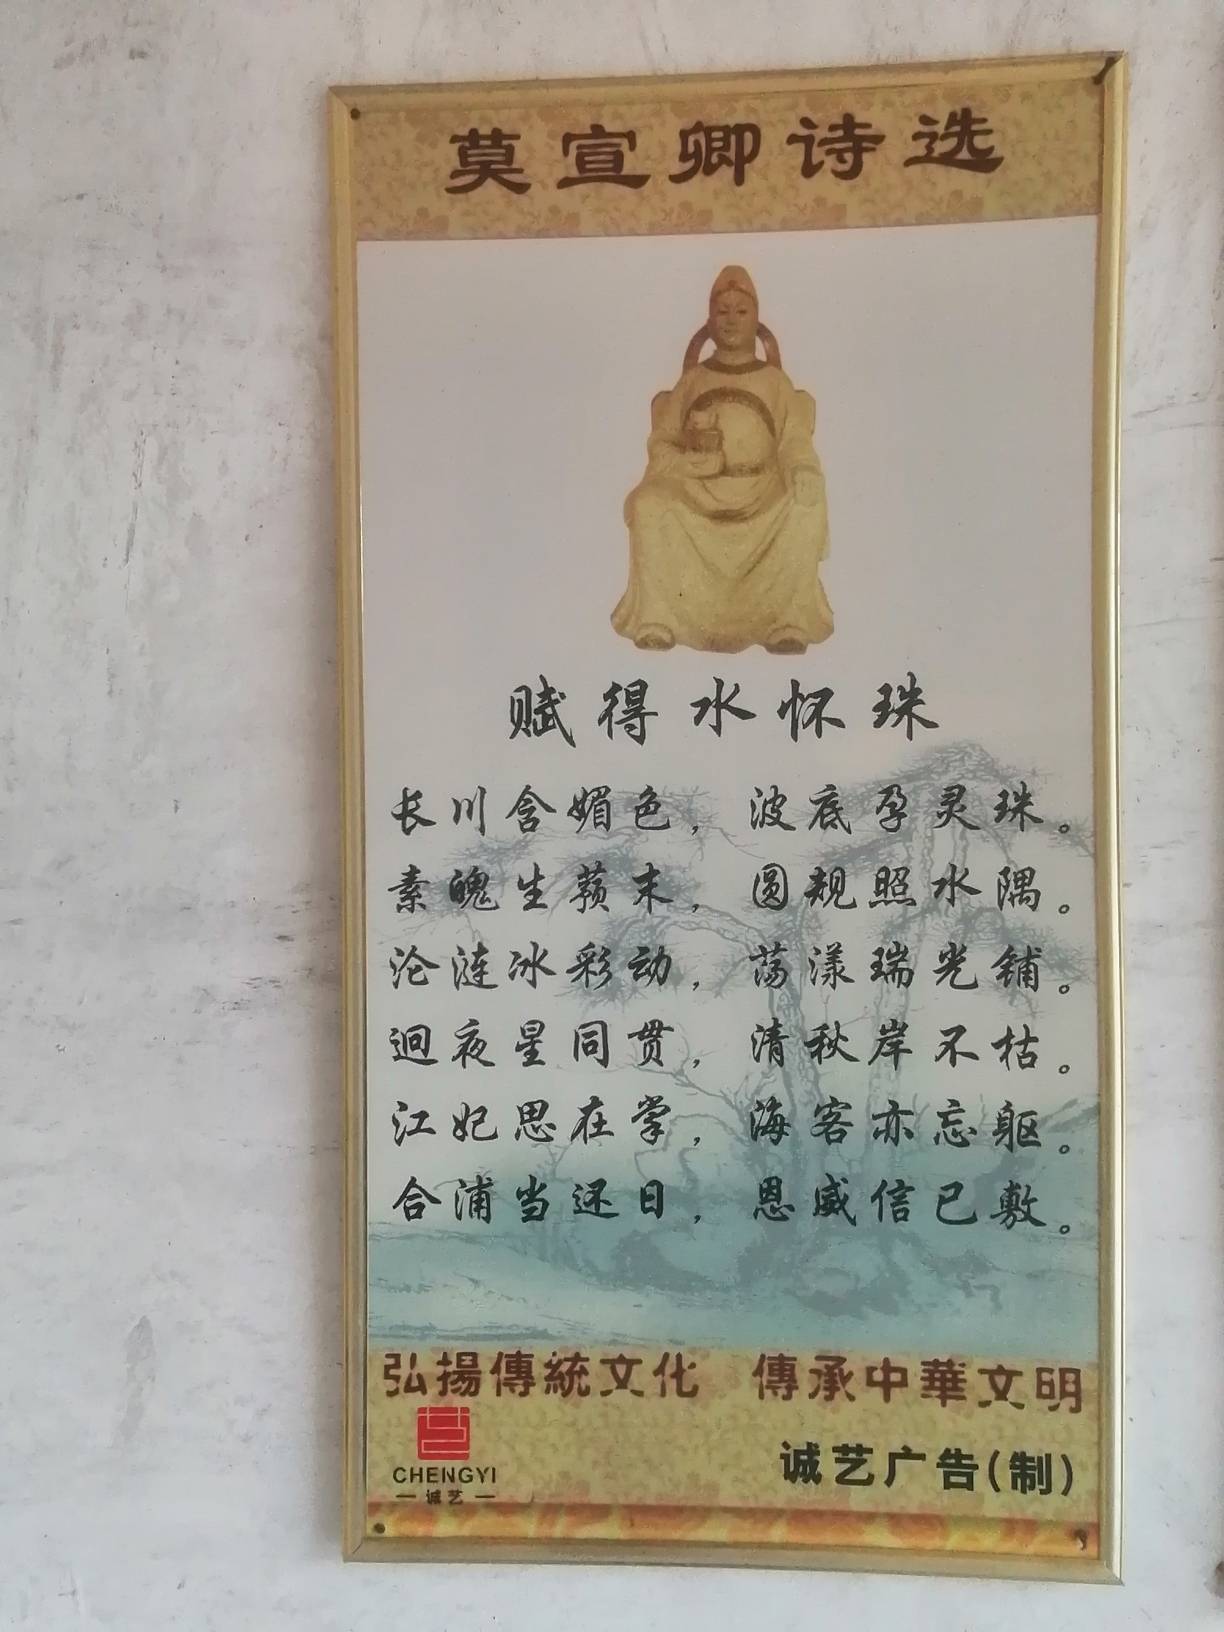 莫宣卿诗选
赋得水怀珠
长川含媚色，波底孕灵珠。
素魄生蘋末，圆规照水隅。
沦涟冰彩动，荡漾瑞光铺。
迥夜星同贯，清秋岸不枯。
江妃思在掌，海客亦忘躯。
合浦当还日，恩威信已敷。
弘揚傳統文化 傳承中華文明
CHENGYI
诚艺
诚艺广告(制)